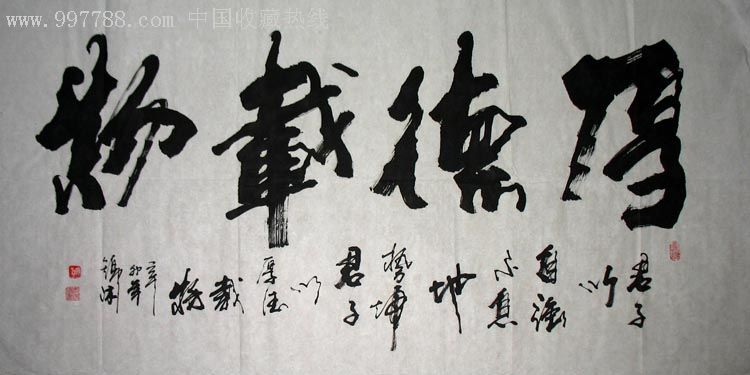 www.997788.com 中国收藏热线
厚德載物
君子
以
自強
不息
地
势坤
君子
以
厚德
載
物
辛
卯年